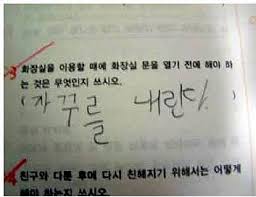 3 화장실을 이용할 때에 화장실 문을 열기 전에 해야 하
는 것은 무엇인지 쓰시오.
( 자꾸를 내린다.
4 친구와 다툰 후에 다시 친해지기 위해서는 어떻게
해야 하는지 쓰시오